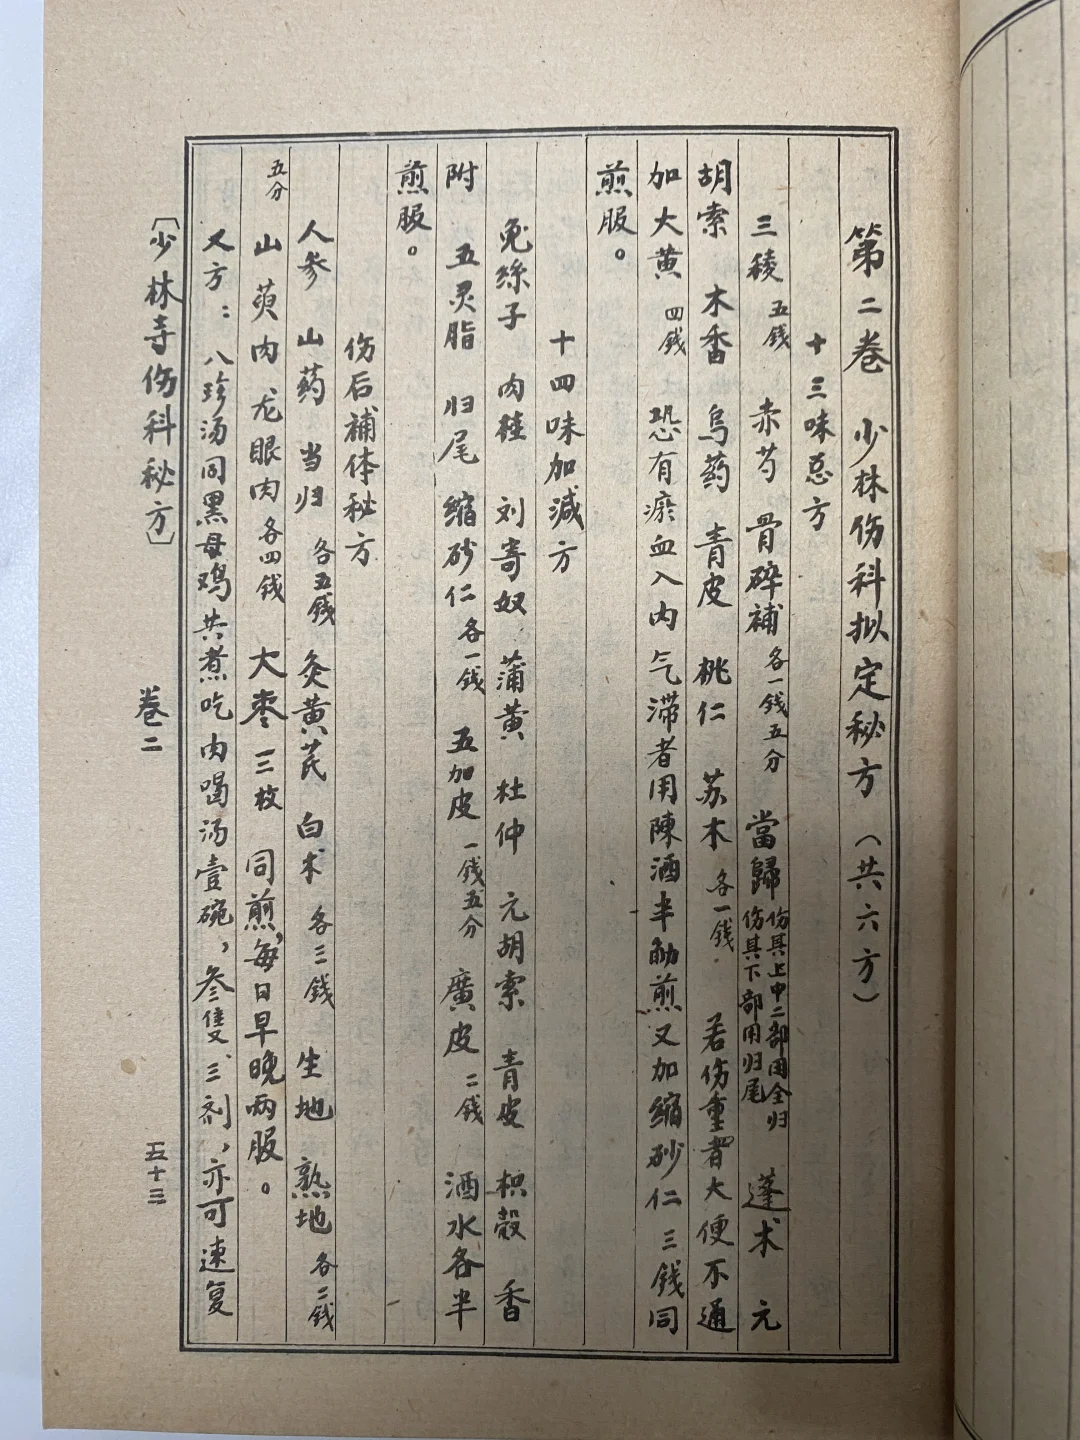 第二卷 少林伤科拟定秘方（共六方）
十三味总方
三稜 五钱 赤芍 骨碎補 各一钱五分 當歸 伤其上中二部用全归 伤其下部用归尾 蓬术 元
胡索 木香 乌药 青皮 桃仁 苏木 各一钱 若伤重者大便不通
加大黄 四钱 恐有瘀血入内气滞者用陳酒半觔煎又加缩砂仁三钱同
煎服。
十四味加减方
兔絲子 肉桂 刘寄奴 蒲黄 杜仲 元胡索 青皮 枳殻 香
附 五灵脂 归尾 缩砂仁 各一钱 五加皮 一钱五分 廣皮 二钱 酒水各半
煎服。
伤后補体秘方
人参 山药 当归 各五钱 灸黄芪 白术 各三钱 生地 熟地 各二钱
五分 山萸肉 龙眼肉 各四钱 大枣三枚 同煎，每日早晚两服。
又方：八珍汤同黑母鸡共煮吃肉喝汤壹碗，叁隻、三剂，亦可速复
〔少林寺伤科秘方〕 卷二 五十三